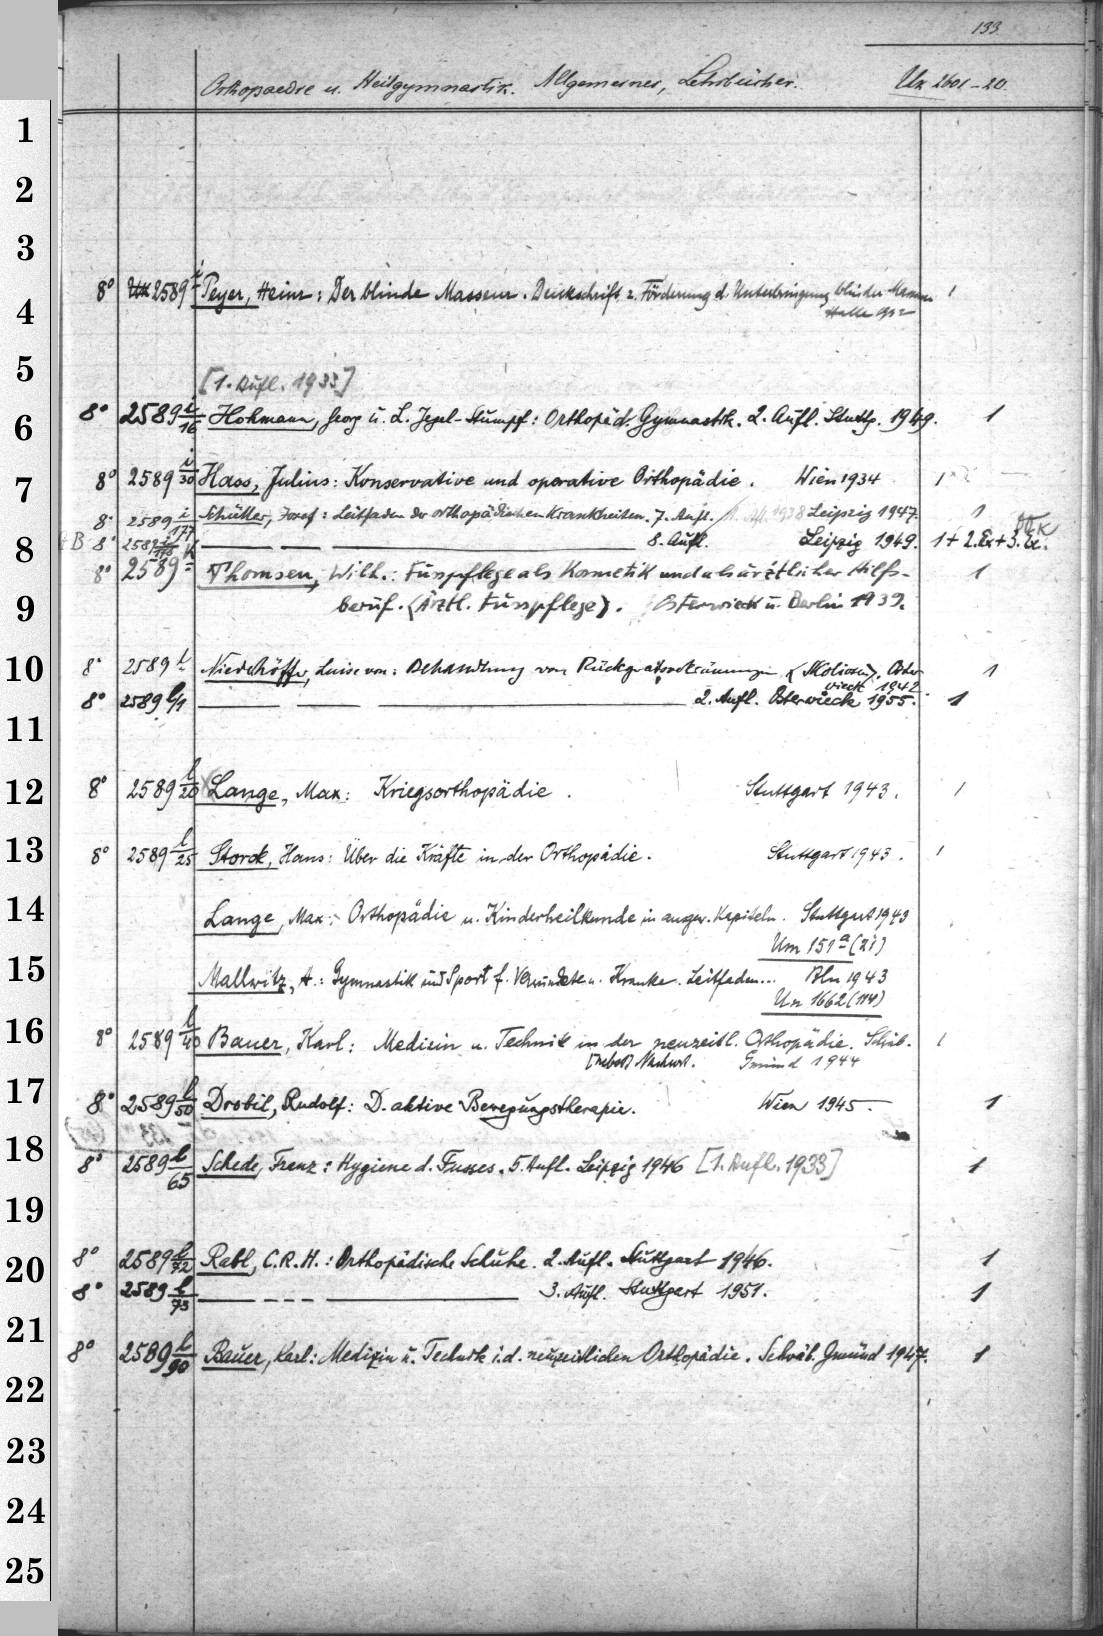 133
Orthopaedie u. Heilgymnastik. Allgemeines, Lehrbücher. Un 2601-20.
1
2
3
8° Un 2589 i Peyer, Heinz: Der blinde Masseur. Denkschrift z. Förderung d. Unterbringung blinder Masseure 1
4 Halle 1932
5
[1. Aufl. 1933]
6 8° 2589 i/16 Hohmann, Georg u. L. Jegel-Stumpf: Orthopäd. Gymnastik. 2. Aufl. Stuttg. 1949. 1
7 8° 2589 i/30 Hass, Julius: Konservative und operative Orthopädie. Wien 1934 1
8° 2589 i/177 Schüller, Josef: Leitfaden der orthopädischen Krankheiten. 7. Aufl. 1938 Leipzig 1947. 1
8 B 8° 2589 i/178 8. Aufl. Leipzig 1949. 1 + 2. Ex + 3. Ex.
8° 2589 k Thomsen, Wilh.: Fusspflege als Kosmetik und als ärztlicher Hilfs- 1
9 beruf. (Ärztl. Fusspflege). Osterwieck u. Berlin 1939.
10 8° 2589 l Niederhöffer, Luise von: Behandlung von Rückgratverkrümmungen (Skoliose). Oster- 1
wieck 1942.
8° 2589 l/1 2. Aufl. Osterwieck 1955. 1
11
12 8° 2589 l/20 Lange, Max: Kriegsorthopädie. Stuttgart 1943. 1
13 8° 2589 l/25 Storck, Hans: Über die Kräfte in der Orthopädie. Stuttgart 1943. 1
14 Lange, Max: Orthopädie u. Kinderheilkunde in ausgew. Kapiteln. Stuttgart 1943
Um 151 a (21)
15 Mallwitz, A.: Gymnastik und Sport f. Verwundete u. Kranke. Leitfaden... Bln 1943
Un 1662 (114)
16 8° 2589 l/40 Bauer, Karl: Medizin u. Technik in der neuzeitl. Orthopädie. Schwb. 1
[nebst] Nachwort. Gmünd 1944
17 8° 2589 l/50 Drobil, Rudolf: D. aktive Bewegungstherapie. Wien 1945 1
18 8° 2589 l/65 Schede, Franz: Hygiene d. Fusses. 5. Aufl. Leipzig 1946 [1. Aufl. 1933] 1
19
20 8° 2589 l/72 Rabl, C.R.H.: Orthopädische Schuhe. 2. Aufl. Stuttgart 1946. 1
8° 2589 l/73 3. Aufl. Stuttgart 1951. 1
21 8° 2589 l/90 Bauer, Karl: Medizin u. Technik i.d. neuzeitlichen Orthopädie. Schwäb. Gmünd 1947. 1
22
23
24
25